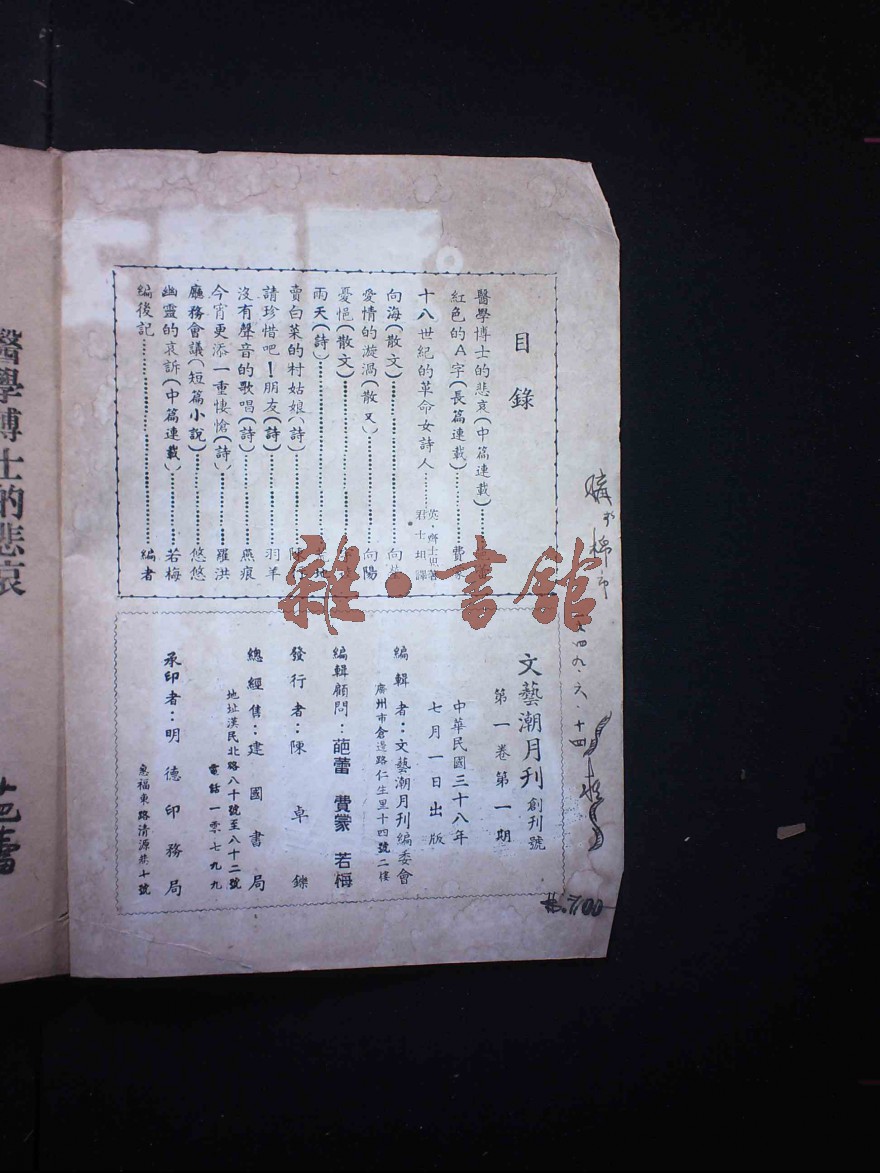 目錄
醫學博士的悲哀(中篇連載)……蕾
紅色的A字(長篇連載)……費
十八世紀的革命女詩人……英
君士坦譯
向海(散文)……向
愛情的漩渦(散文)……向陽
憂悒(散文)……
雨天(詩)……地
賣白菜的村姑娘(詩)……陳
請珍惜吧!朋友(詩)……羽羊
沒有聲音的歌唱(詩)……燕痕
今宵更添一重悽愴(詩)……羅洪
廳務會議(短篇小說)……悠悠
幽靈的哀訴(中篇連載)……若梅
編後記……編者
文藝潮月刊 創刊號
第一卷第一期
中華民國三十八年
七月一日出版
編輯者:文藝潮月刊編委會
廣州市倉邊路仁生里十四號二樓
編輯顧問:葩蕾 費蒙 若梅
發行者:陳卓鑠
總經售:建國書局
地址漢民北路八十號至八十二號
電話一零七九九
承印者:明德印務局
惠福東路清源巷十號
四九.六.十四
7.00
雜·書館
醫學博士的悲哀
葩蕾